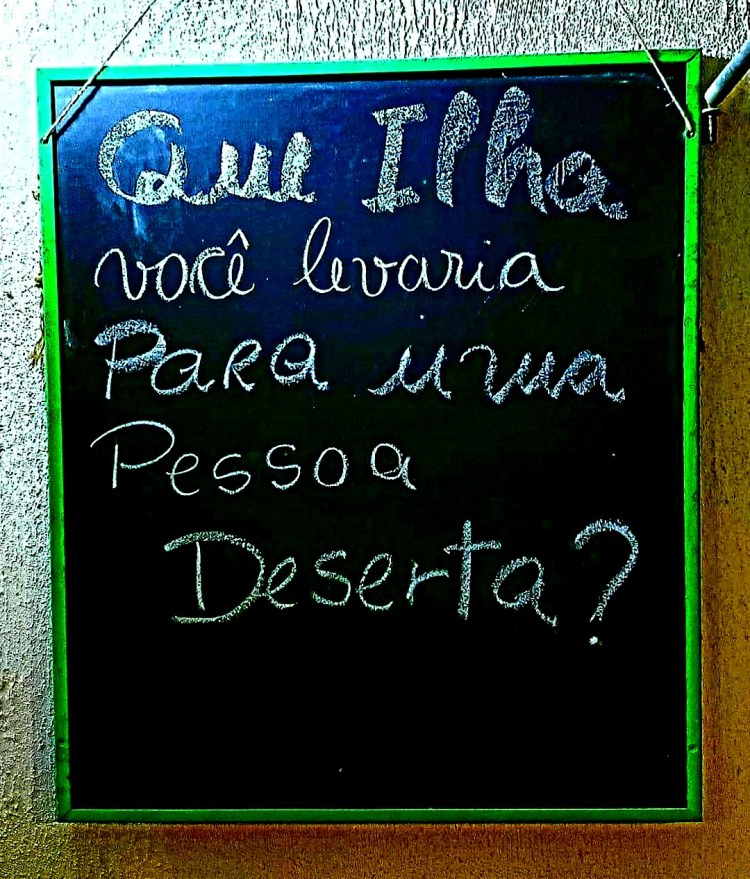 Que Ilha
você levaria
Para uma
Pessoa
Deserta?